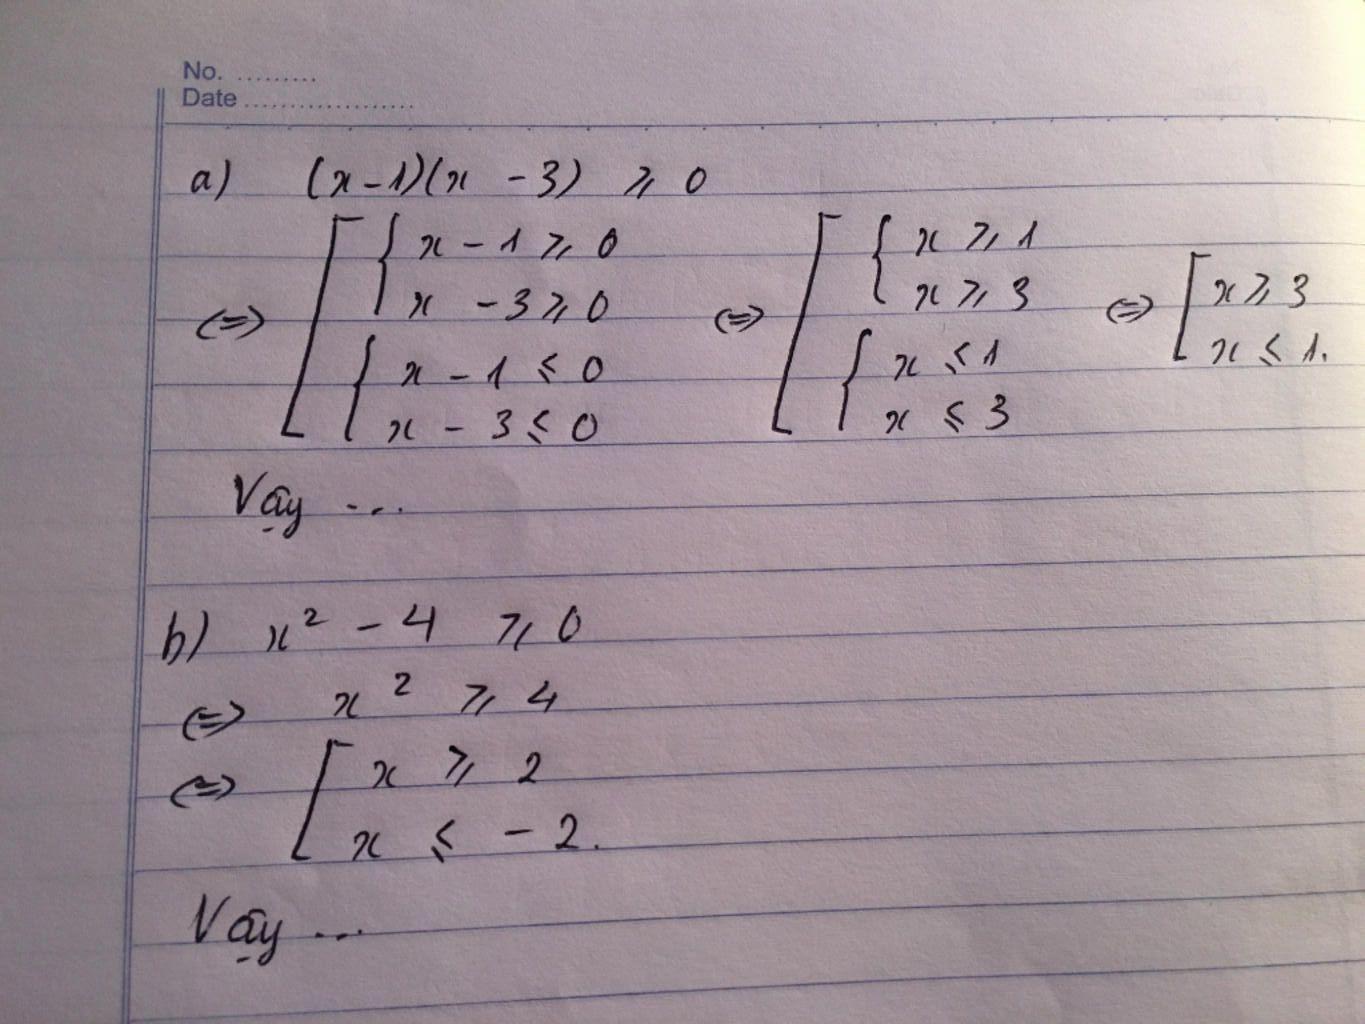 No. .........
Date ...................
a) (x-1)(x - 3) ⩾ 0
⇔ [ { x - 1 ⩾ 0
x - 3 ⩾ 0
{ x - 1 ⩽ 0
x - 3 ⩽ 0
⇔ [ { x ⩾ 1
x ⩾ 3
{ x ⩽ 1
x ⩽ 3
⇔ [ x ⩾ 3
x ⩽ 1.
Vậy ...
b) x² - 4 ⩾ 0
⇔ x² ⩾ 4
⇔ [ x ⩾ 2
x ⩽ - 2.
Vậy ...